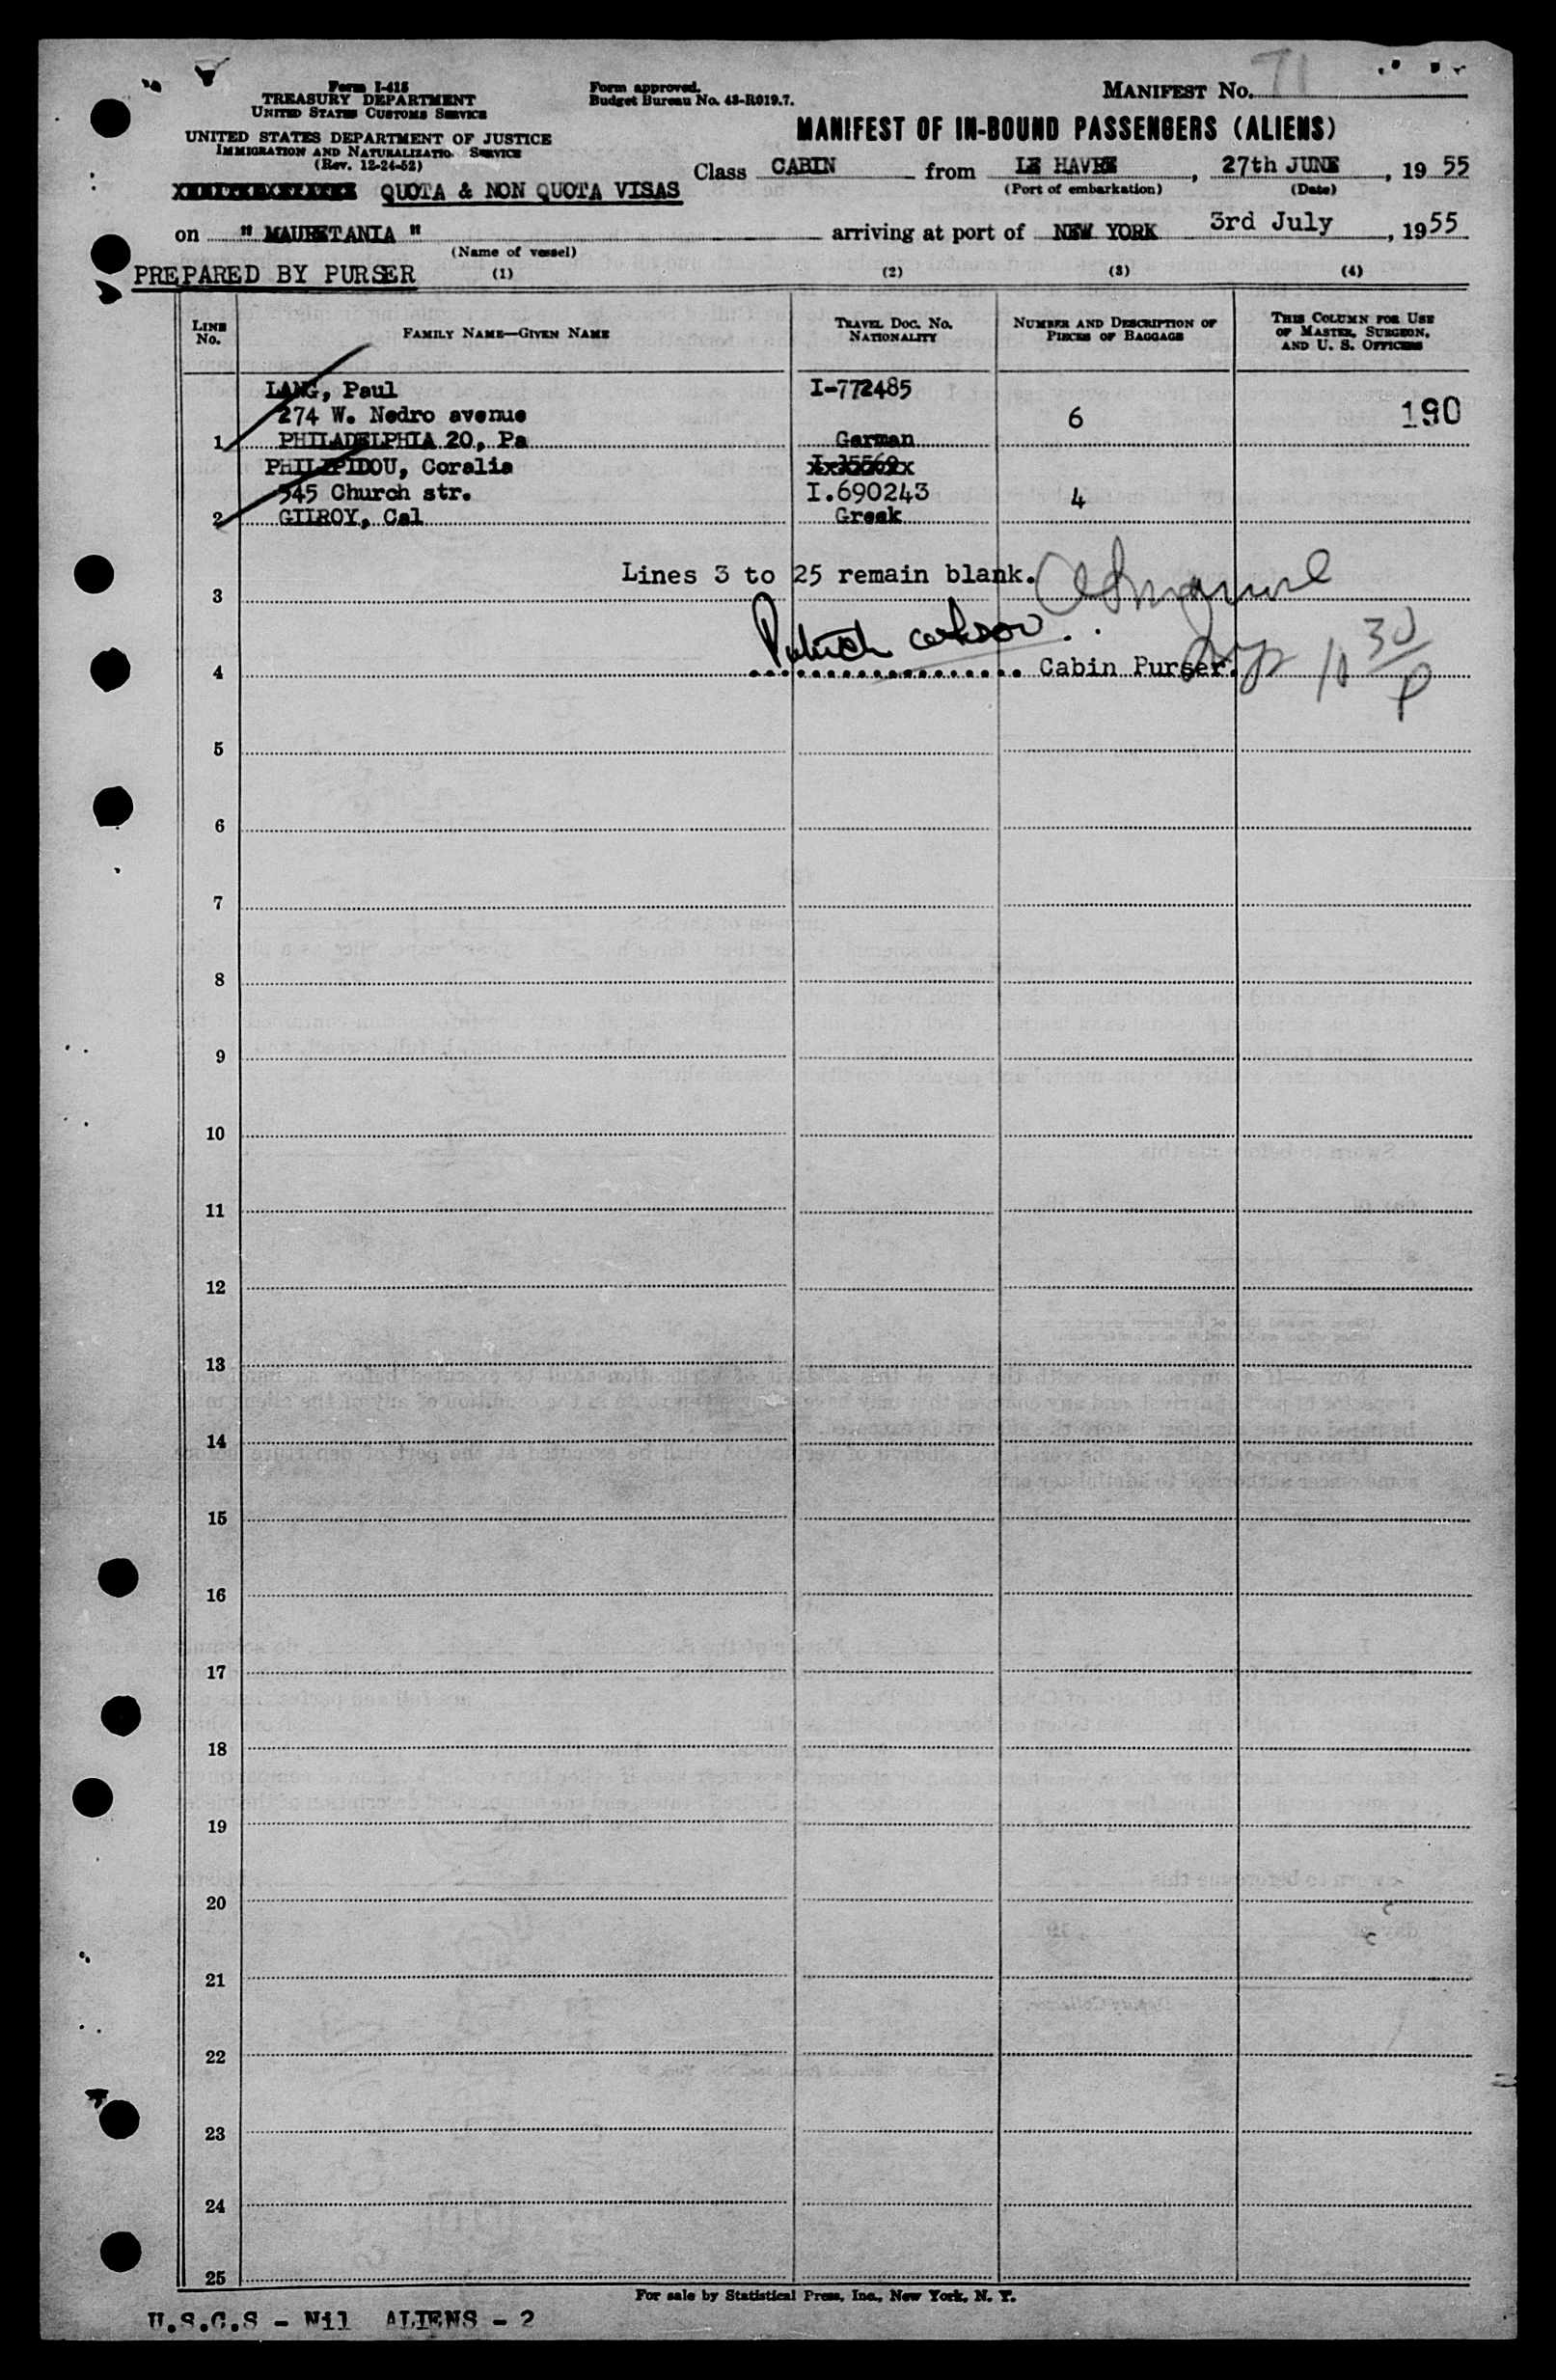 Form I-415
TREASURY DEPARTMENT
UNITED STATES CUSTOMS SERVICE
UNITED STATES DEPARTMENT OF JUSTICE
IMMIGRATION AND NATURALIZATIO SERVICE
(Rev. 12-24-52)
Form approved.
Budget Bureau No. 43-R019.7.
MANIFEST NO. 71
MANIFEST OF IN-BOUND PASSENGERS (ALIENS)
Class CABIN from LE HAVRE, 27th JUNE, 19 55
(Port of embarkation) (Date)
QUOTA & NON QUOTA VISAS
on " MAURETANIA " arriving at port of NEW YORK 3rd July, 1955
(Name of vessel)
PREPARED BY PURSER (1) (2) (3) (4)
LINE No.
FAMILY NAME—GIVEN NAME
TRAVEL DOC. NO. NATIONALITY
NUMBER AND DESCRIPTION OF PIECES OF BAGGAGE
THIS COLUMN FOR USE OF MASTER, SURGEON, AND U. S. OFFICERS
LANG, Paul I-772485
274 W. Nedro avenue 6 190
1 PHILADELPHIA 20, Pa German
PHILIPPIDOU, Coralia
545 Church str. I.690243 4
2 GILROY, Cal Greek
Lines 3 to 25 remain blank.
3
4 Cabin Purser.
10 30/P
5
6
7
8
9
10
11
12
13
14
15
16
17
18
19
20
21
22
23
24
25
For sale by Statistical Press, Inc., New York, N. Y.
U.S.C.S - Nil ALIENS - 2